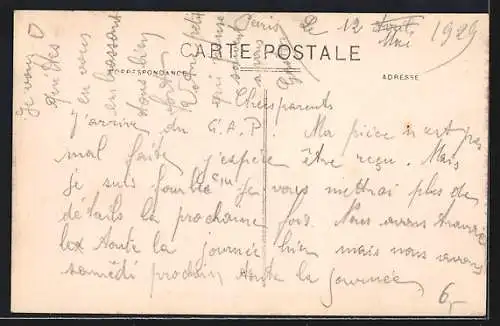 Paris Le 12 Mai 1929
CARTE POSTALE
CORRESPONDANCE
ADRESSE
Chers parents
J'arrive du C.A.P. Ma pièce n'est pas
mal faite j'espère être reçu. Mais
je suis je vous mettrai plus de
détails la prochaine fois. Nous avons travaillé
toute la journée hier mais nous avons
samedi prochain toute la journée
Je vous
quittes
en vous
embrassant
tous bien
fort
Votre petit
qui pense
à vous
6,-